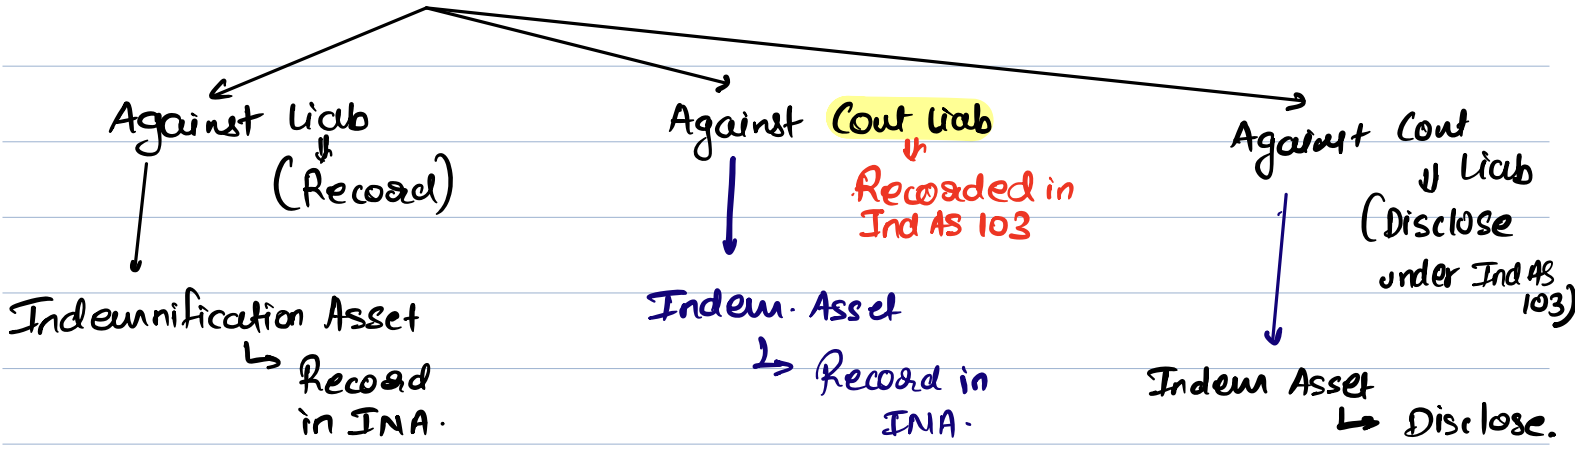 Against Liab
(Record)
Indemnification Asset
Record
in INA.
Against Cont Liab
Recorded in
Ind AS 103
Indem. Asset
Record in
INA.
Against Cont
Liab
(Disclose
under Ind AS
103)
Indem Asset
Disclose.